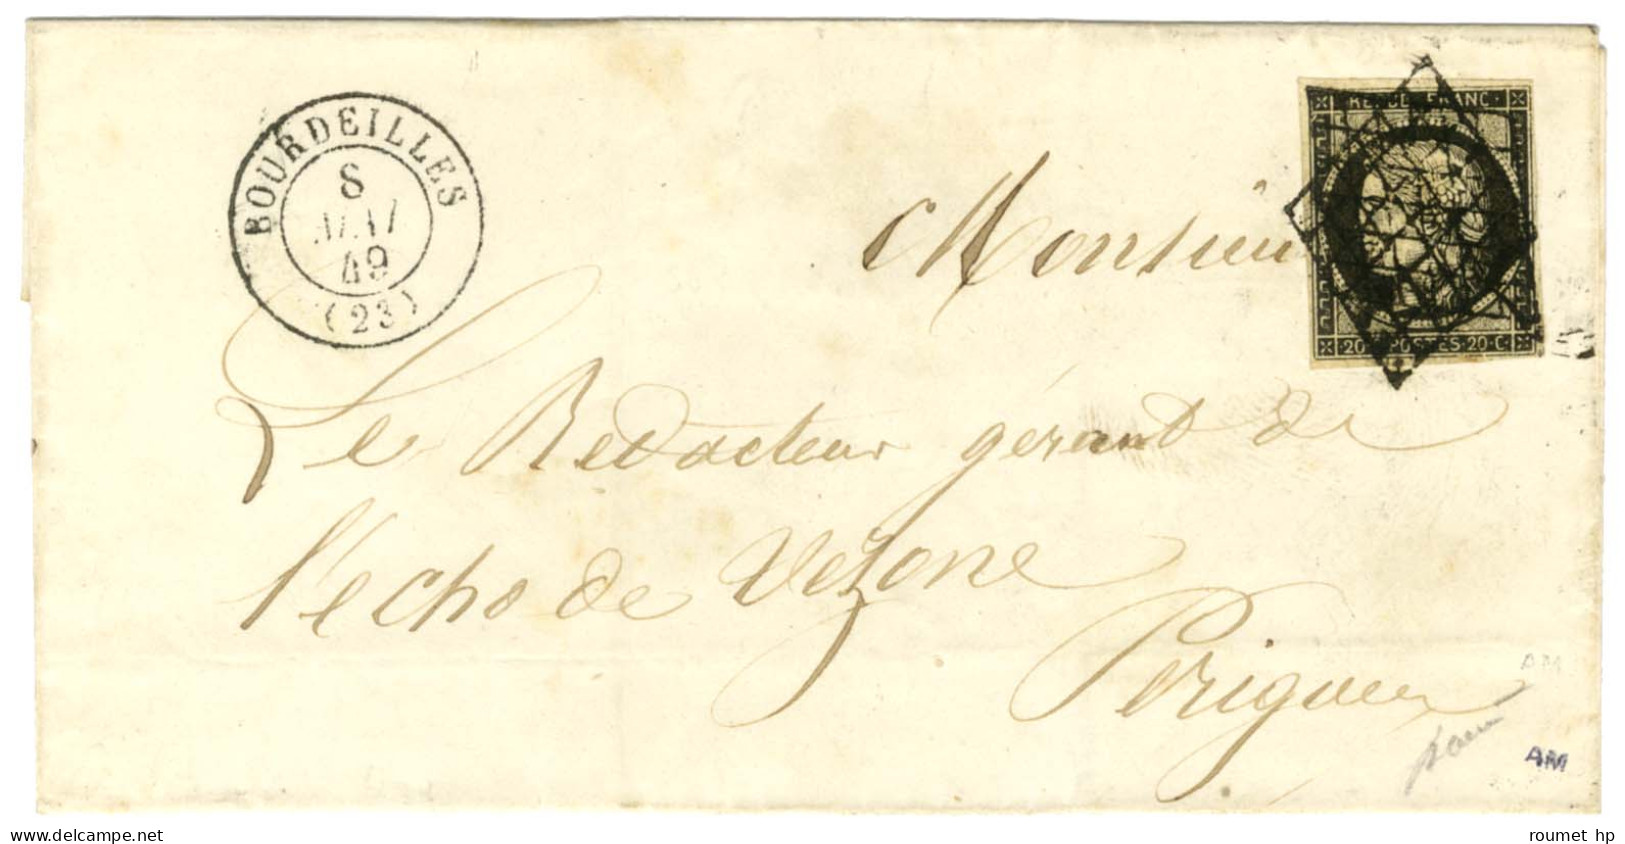 BOURDEILLES
8
MAI
49
(23)
REPUB. FRANC.
20 C POSTES 20 C
Monsieur
Le Redacteur gérant de
l'echo de Vesone
Perigueux
AM
AM
www.delcampe.net
roumet hp